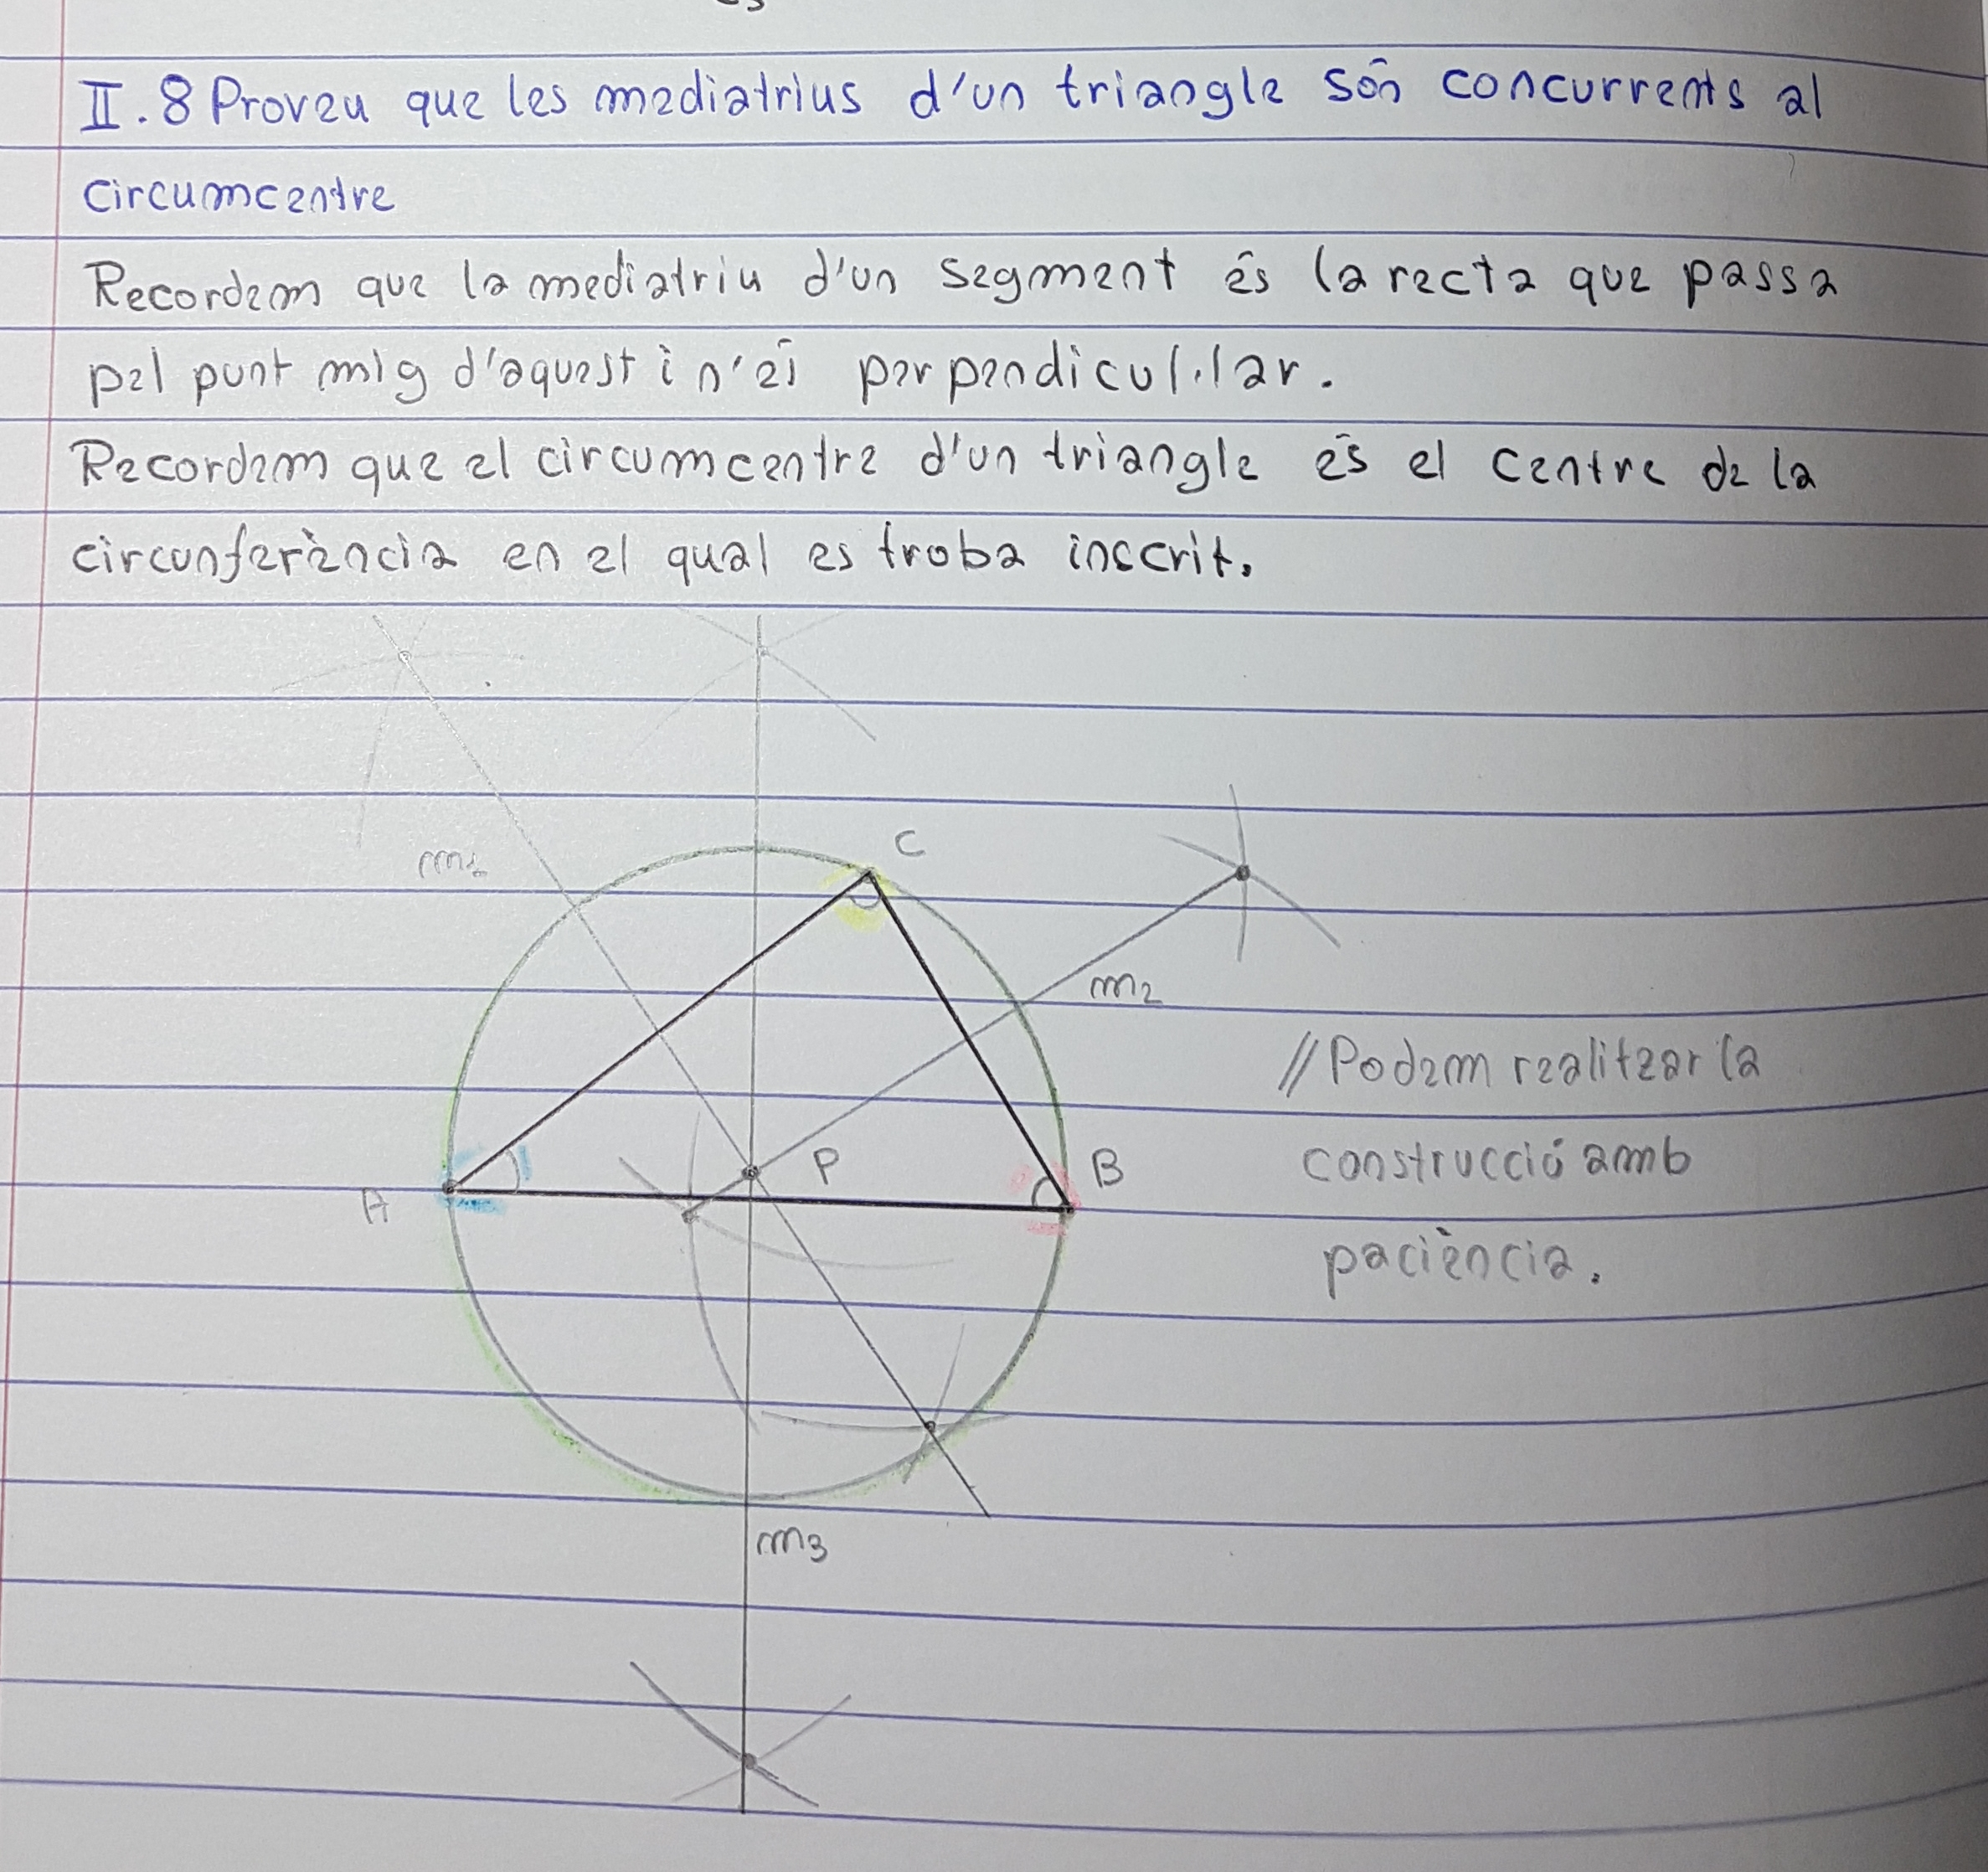 II.8 Proveu que les mediatrius d'un triangle són concurrents al
circumcentre
Recordem que la mediatriu d'un segment és la recta que passa
pel punt mig d'aquest i n'és perpendicul·lar.
Recordem que el circumcentre d'un triangle és el centre de la
circunferència en el qual es troba inscrit.
C
m1
m2
//Podem realitzar la
construcció amb
paciència.
A
P
B
m3